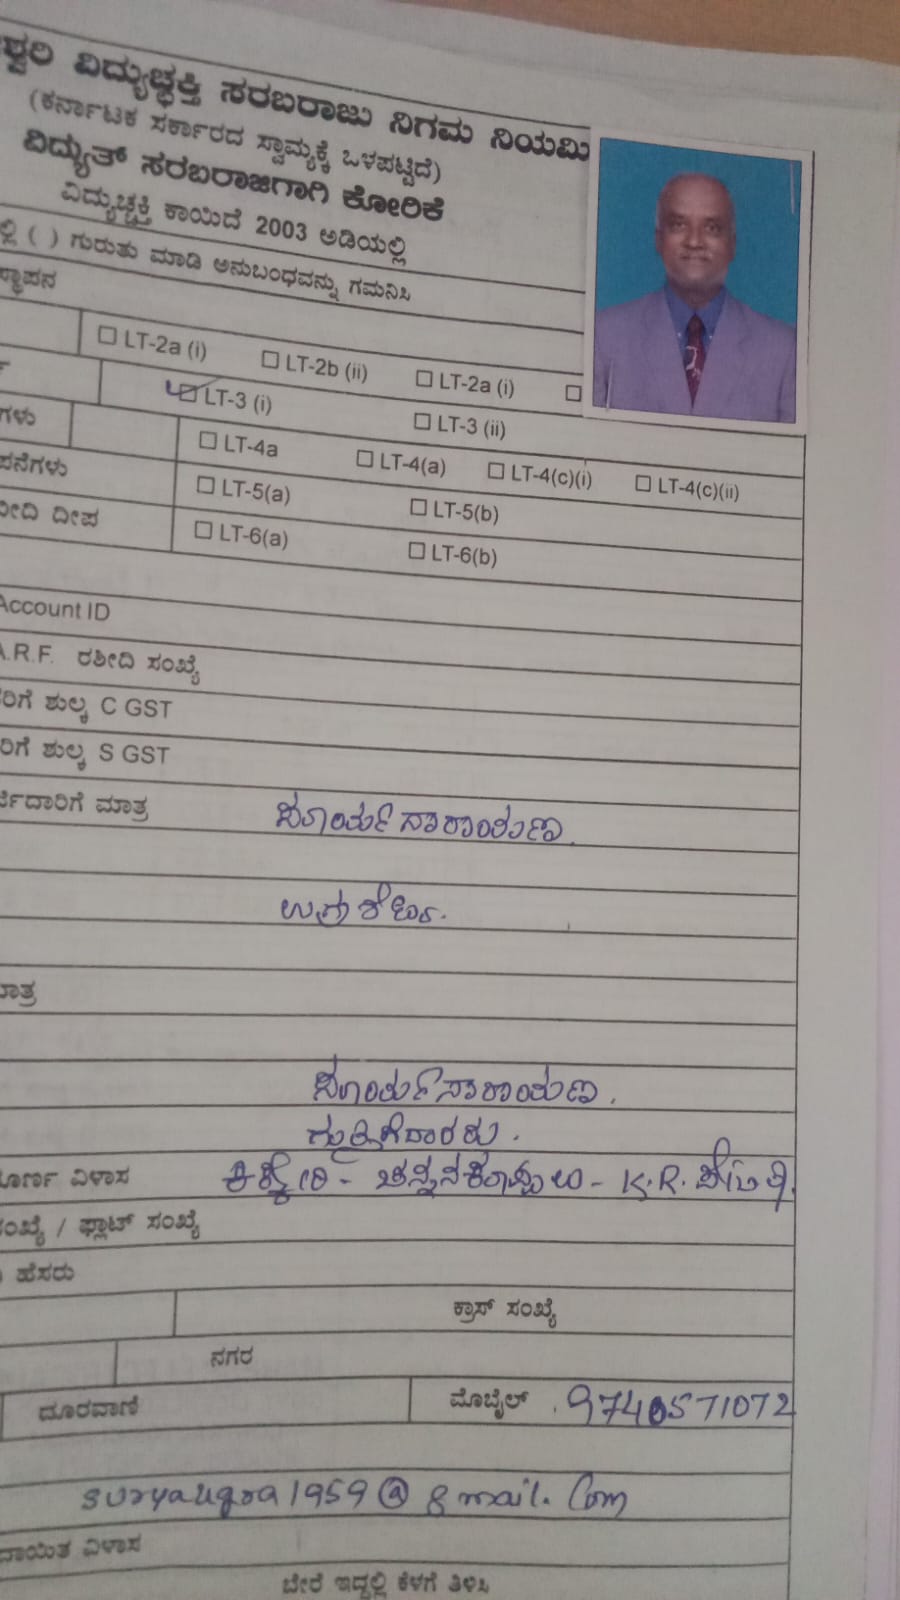 ವಿದ್ಯುಚ್ಛಕ್ತಿ ಸರಬರಾಜು ನಿಗಮ ನಿಯಮಿ
(ಕರ್ನಾಟಕ ಸರ್ಕಾರದ ಸ್ವಾಮ್ಯಕ್ಕೆ ಒಳಪಟ್ಟಿದೆ)
ವಿದ್ಯುತ್ ಸರಬರಾಜಿಗಾಗಿ ಕೋರಿಕೆ
ವಿದ್ಯುಚ್ಛಕ್ತಿ ಕಾಯಿದೆ 2003 ಅಡಿಯಲ್ಲಿ
ಲ್ಲಿ ( ) ಗುರುತು ಮಾಡಿ ಅನುಬಂಧವನ್ನು ಗಮನಿಸಿ
ಸ್ಥಾಪನ
LT-2a (i) LT-2b (ii) LT-2a (i)
LT-3 (i) LT-3 (ii)
ಗಳು LT-4a LT-4(a) LT-4(c)(i) LT-4(c)(ii)
ಪನೆಗಳು LT-5(a) LT-5(b)
ೀದಿ ದೀಪ LT-6(a) LT-6(b)
Account ID
A.R.F. ರಶೀದಿ ಸಂಖ್ಯೆ
ರಿಗೆ ಶುಲ್ಕ C GST
ರಿಗೆ ಶುಲ್ಕ S GST
ರ್ಜಿದಾರಿಗೆ ಮಾತ್ರ ಸೂರ್ಯನಾರಾಯಣ
ಮಾತ್ರ
ಸೂರ್ಯನಾರಾಯಣ.
ಗುತ್ತಿಗೆದಾರರು.
ೂರ್ಣ ವಿಳಾಸ ಕಿಕ್ಕೇರಿ - - K.R. ಪೇಟೆ
ಸಂಖ್ಯೆ / ಫ್ಲಾಟ್ ಸಂಖ್ಯೆ
ಹೆಸರು
ಕ್ರಾಸ್ ಸಂಖ್ಯೆ
ನಗರ
ದೂರವಾಣಿ ಮೊಬೈಲ್ 9740571072
1959@gmail.Com
ದಾಯಿತ ವಿಳಾಸ
ಬೇರೆ ಇದ್ದಲ್ಲಿ ಕೆಳಗೆ ತಿಳಿಸಿ